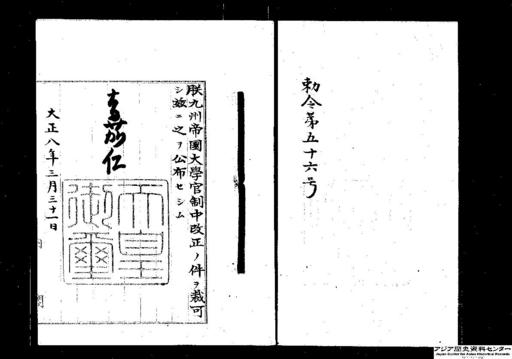 勅令第五十六号
朕九州帝國大學官制中改正ノ件ヲ裁可
シ玆ニ之ヲ公布セシム
嘉仁
天皇
御璽
大正八年三月三十一日
アジア歴史資料センター
Japan Center for Asian Historical Records